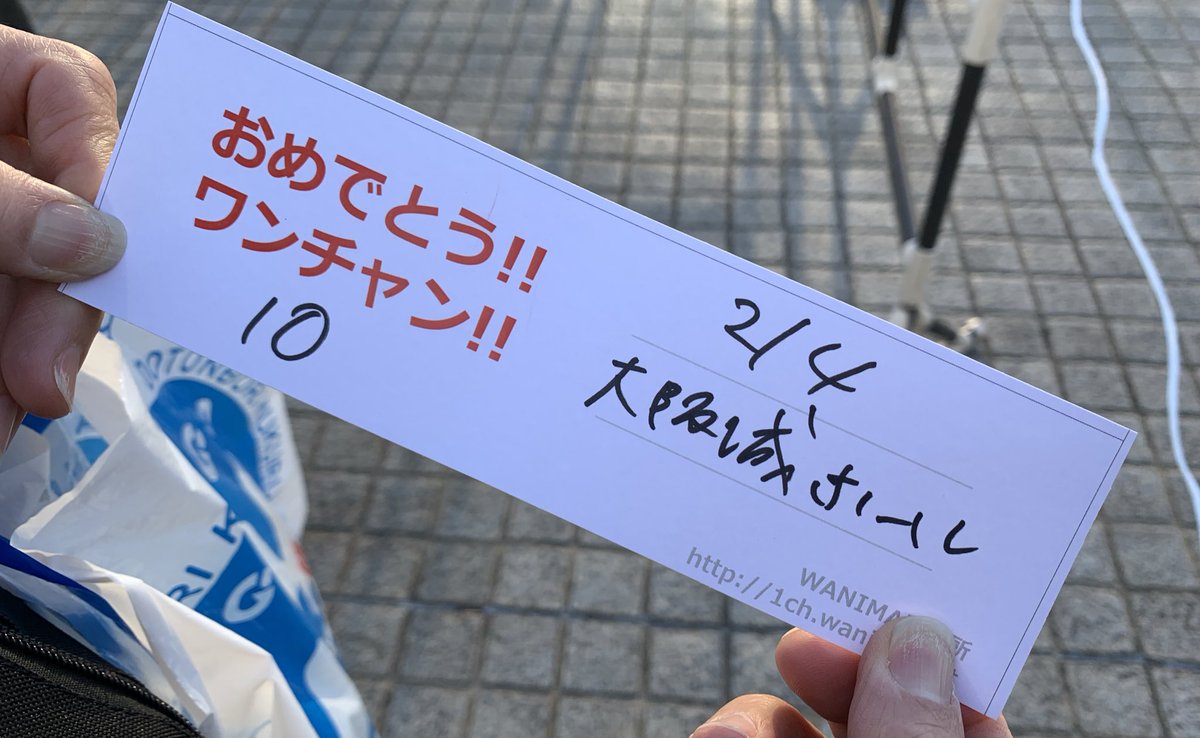 おめでとう!!
ワンチャン!!
10
2/4
大阪城ホール
WANIMA
http://1ch.wan
所
DOTONBORI KUKURU